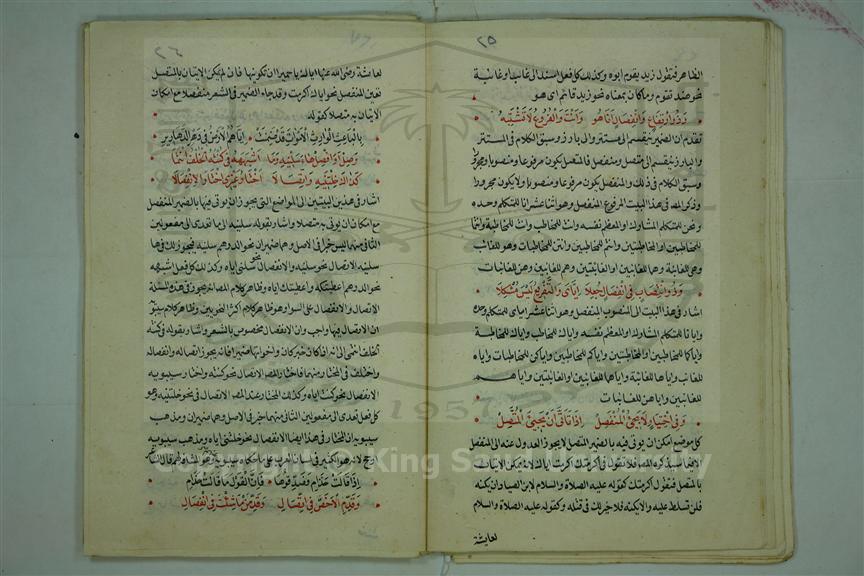 ٢٥
الظاهر فتقول زيد يقوم ابوه وكذلك كل فعل اسند الى غائب او غائبة
نحو هند تقوم وما كان بمعناه نحو زيد قائم اى هو
وذو ارتفاع وانفصال انا هو وانت والفروع لا تشتبه
تقدم ان الضمير ينقسم الى مستتر والى بارز وسبق الكلام فى المستتر
والبارز ينقسم الى متصل ومنفصل فالمتصل يكون مرفوعا ومنصوبا ومجرورا
وسبق الكلام فى ذلك والمنفصل يكون مرفوعا ومنصوبا ولا يكون مجرورا
وذكر المص فى هذا البيت المرفوع المنفصل وهو اثنا عشر انا للمتكلم وحده
ونحن للمتكلم المشارك او المعظم نفسه وانت للمخاطب وانت للمخاطبة وانتما
للمخاطبين او المخاطبتين وانتم للمخاطبين وانتن للمخاطبات وهو للغائب
وهى للغائبة وهما للغائبين او الغائبتين وهم للغائبين وهن للغائبات
وذو انتصاب فى انفصال جعلا اياى والتفريع ليس مشكلا
اشار فى هذا البيت الى المنصوب المنفصل وهو اثنا عشر اياى للمتكلم وحده
وايانا للمتكلم المشارك او المعظم نفسه واياك للمخاطب واياك للمخاطبة
واياكما للمخاطبين او المخاطبتين واياكم للمخاطبين واياكن للمخاطبات واياه
للغائب واياها للغائبة واياهما للغائبين او الغائبتين واياهم
للغائبين واياهن للغائبات
وفى اختيار لا يجئ المنفصل اذا تأتى ان يجئ المتصل
كل موضع امكن ان يؤتى فيه بالضمير المتصل لا يجوز العدول عنه الى المنفصل
الا فيما سيذكره المص فلا تقول فى اكرمتك اكرمت اياك لانه يمكن الاتيان
بالمتصل فتقول اكرمتك كقوله عليه الصلاة والسلام لابن الصياد ان يكنه
فلن تسلط عليه والا يكنه فلا خير لك فى قتله وكقوله عليه الصلاة والسلام
لعايشة
٢٦
لعائشة رضى الله عنها اياك يا حميرا ان تكونيها فان لم يمكن الاتيان بالمتصل
تعين المنفصل نحو اياك اكرمت وقد جاء الضمير فى الشعر منفصلا مع امكان
الاتيان به متصلا كقوله
بالباعث الوارث الاموات قد ضمنت اياهم الارض فى دهر الدهارير
وصل او افصل هاء سلنيه وما اشبهه فى كنته الخلف انتمى
كذاك خلتنيه واتصالا اختار غيرى اختار الانفصالا
اشار فى هذين البيتين الى المواضع التى يجوز ان يؤتى فيها بالضمير المنفصل
مع امكان ان يؤتى به متصلا واشار بقوله سلنيه الى ما تعدى الى مفعولين
الثانى منهما ليس خبرا فى الاصل وهما ضميران نحو الدرهم سلنيه فيجوز لك فى هاء
سلنيه الاتصال نحو سلنيه والانفصال نحو سلنى اياه وكذلك كل فعل اشبهه
نحو الدرهم اعطيتكه واعطيتك اياه وظاهر كلام المص انه يجوز فى هذه المسئلة
الاتصال والانفصال على السواء وهو ظاهر كلام اكثر النحويين وظاهر كلام سيبويه
ان الاتصال فيها واجب وان الانفصال مخصوص بالشعر واشار بقوله فى كنته
الخلف انتمى الى انه اذا كان خبر كان واخواتها ضميرا فانه يجوز اتصاله وانفصاله
واختلف فى المختار منهما فاختار المص الاتصال نحو كنته واختار سيبويه
الانفصال نحو كنت اياه وكذلك المختار عند المص الاتصال فى نحو خلتنيه وهو
كل فعل تعدى الى مفعولين الثانى منهما خبر فى الاصل وهما ضميران ومذهب
سيبويه ان المختار فى هذا ايضا الانفصال نحو خلتنى اياه ومذهب سيبويه
ارجح لانه هو الكثير فى لسان العرب على ما حكاه سيبويه عنهم وهو المشافه لهم قال الشاعر
اذا قالت حذام فصدقوها فان القول ما قالت حذام
وقدم الاخص فى اتصال وقدمن ما شئت فى انفصال
1957
Copyright © King Saud University